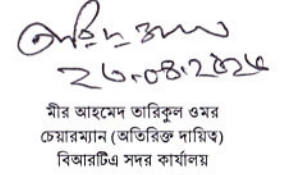 ২৬.০৪.২০২৬
মীর আহমেদ তারিকুল ওমর
চেয়ারম্যান (অতিরিক্ত দায়িত্ব)
বিআরটিএ সদর কার্যালয়